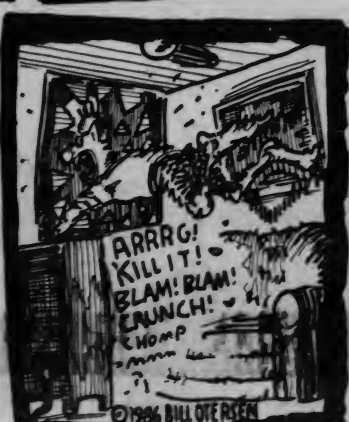 ARRRG!
KILL IT!
BLAM! BLAM!
CRUNCH!
CHOMP
©1986 BILL OTERSEN